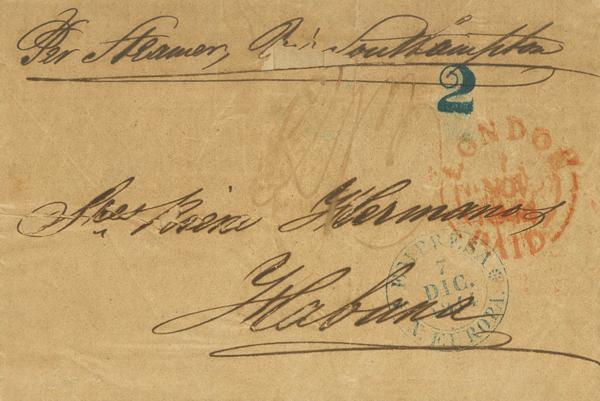 Per Steamer, Via Southampton
2
LONDON
1
NOV
PAID
Sres Hermanos
EMPRESA
7
DIC.
EUROPA.
Habana